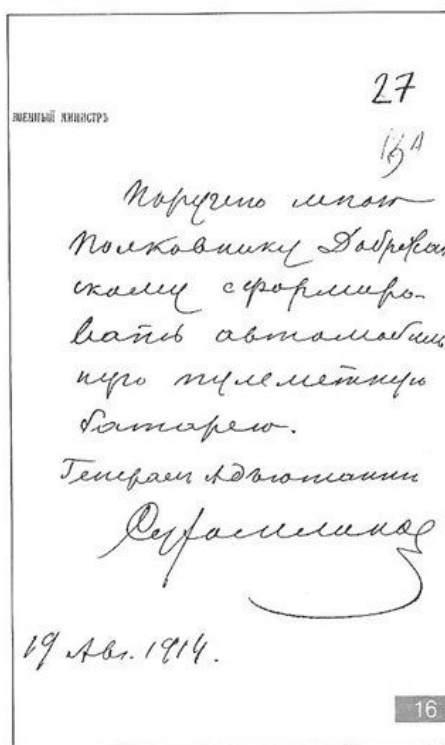 27
ВОЕННЫЙ МИНИСТРЪ
Поручено мною
Полковнику Добржан
скому сформиро-
вать автомобиль
ную пулеметную
батарею.
Генерал Адъютант
Сухомлинов
19 Авг. 1914.
16